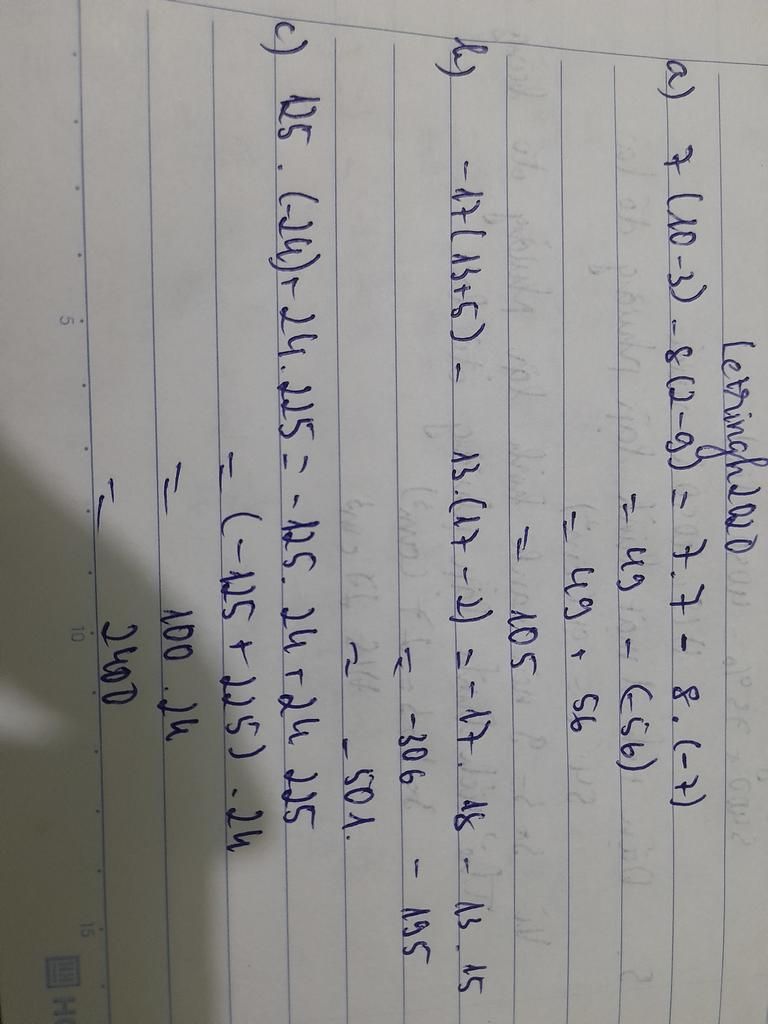 Letringh2020
a) 7(10-3) - 8(2-9) = 7.7 - 8.(-7)
= 49 - (-56)
= 49 + 56
= 105
b) -17(13+5) - 13.(17-2) = -17.18 - 13.15
= -306 - 195
= -501.
c) 125.(-24)+24.225 = -125.24+24 225
= (-125+225).24
= 100.24
= 2400
5 10 15